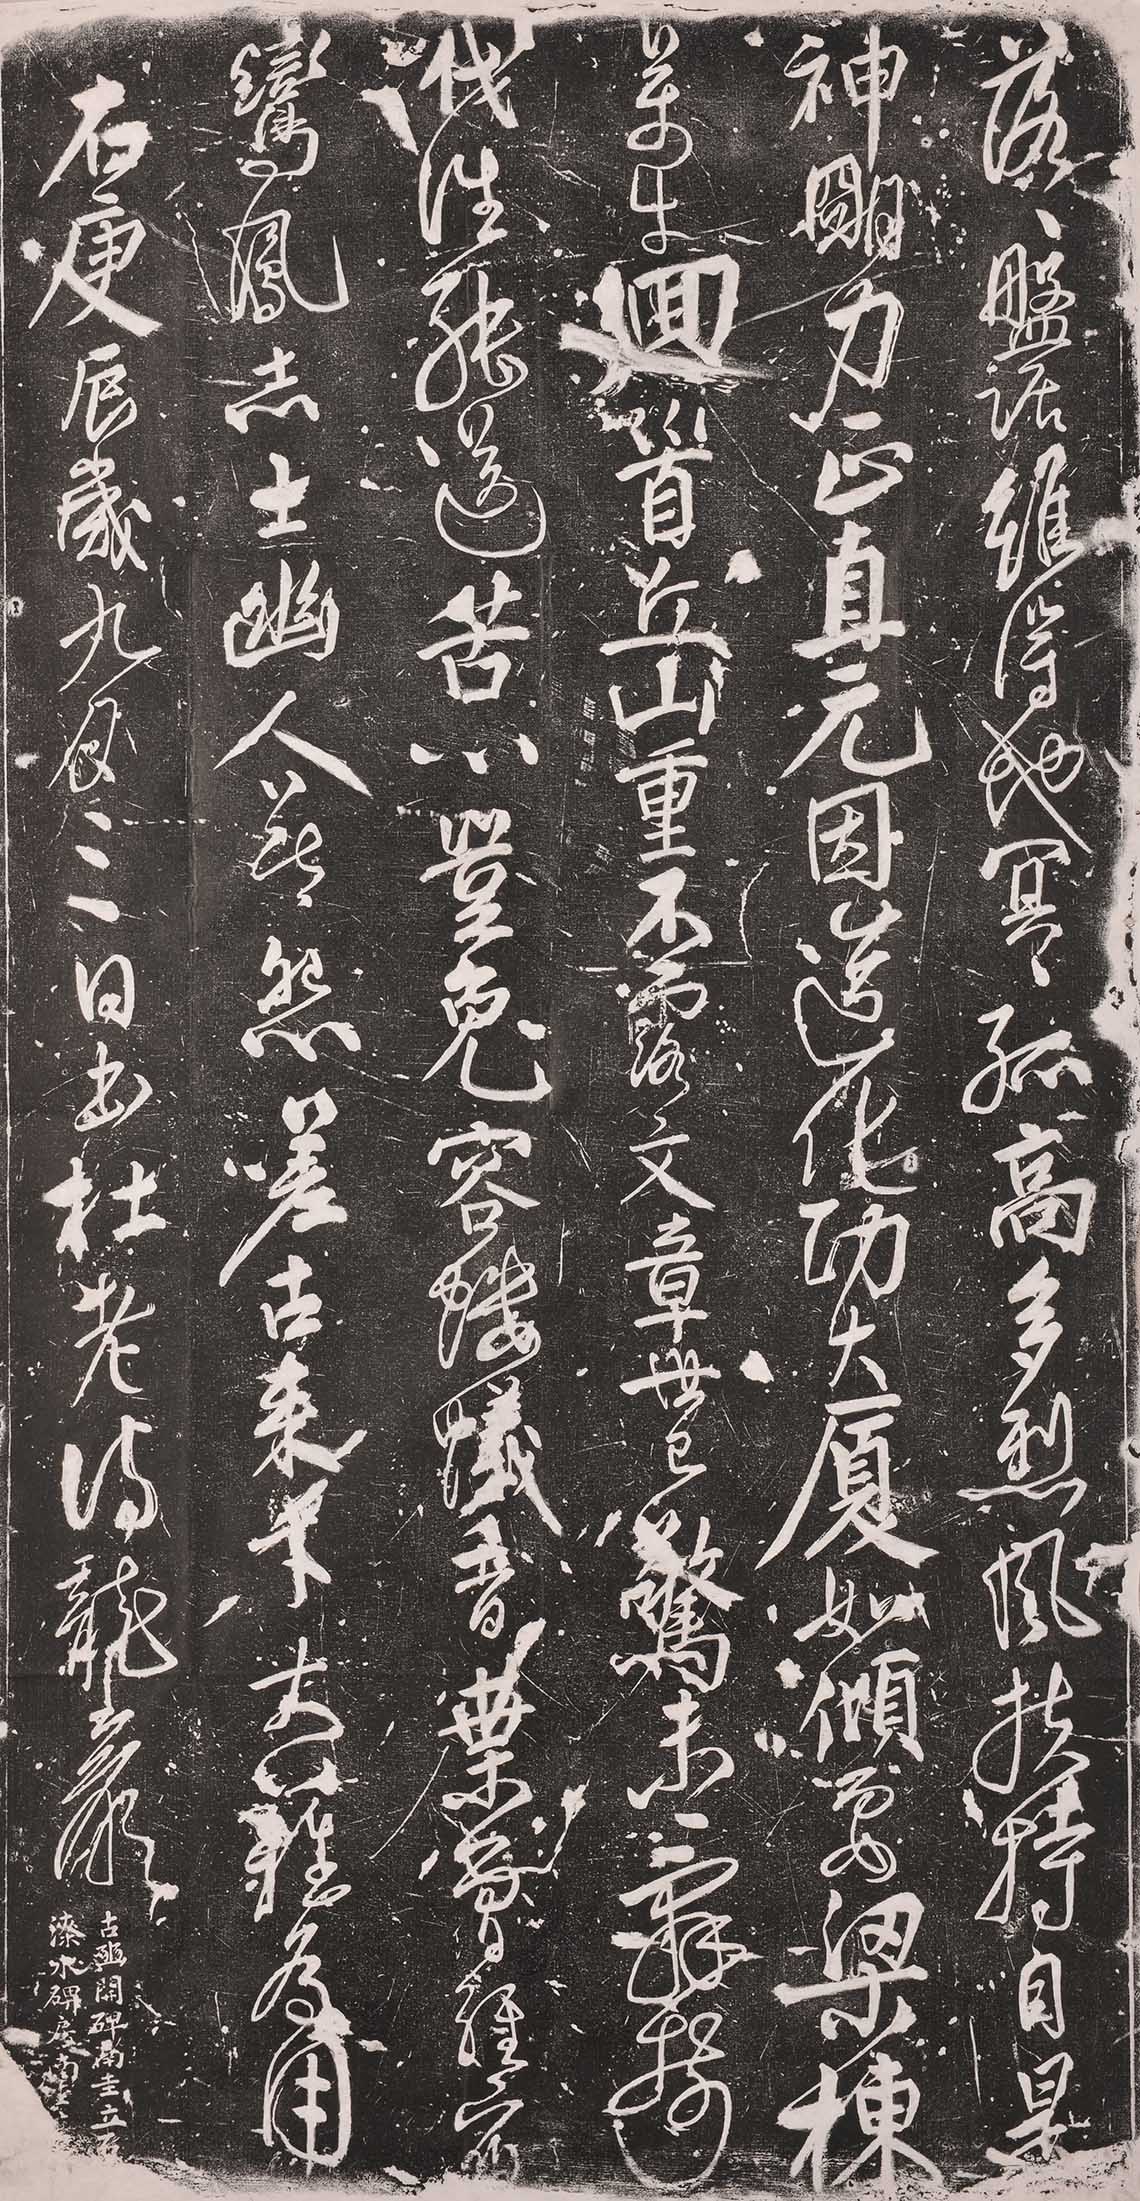 落〻盤踞雖得地冥〻孤高多烈風扶持自是
神朙力正直元因造化功大厦如傾要梁棟
萬牛回首丘山重不露文章世已驚未辭剪
伐誰能送苦心豈免容螻蟻香葉曾經宿
鸞鳳志士幽人莫怨嗟古來才大難為用
右庚辰歲九月三日書杜老詩龍巖
古豳開碑南圭立石
漆水碑房南